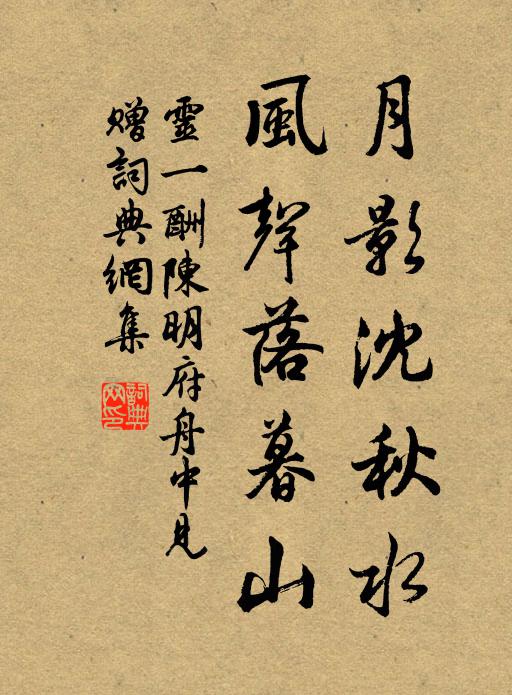 月影沈秋水
風聲落暮山
靈一酬陳明府舟中見
贈詞典網集
詞典網印